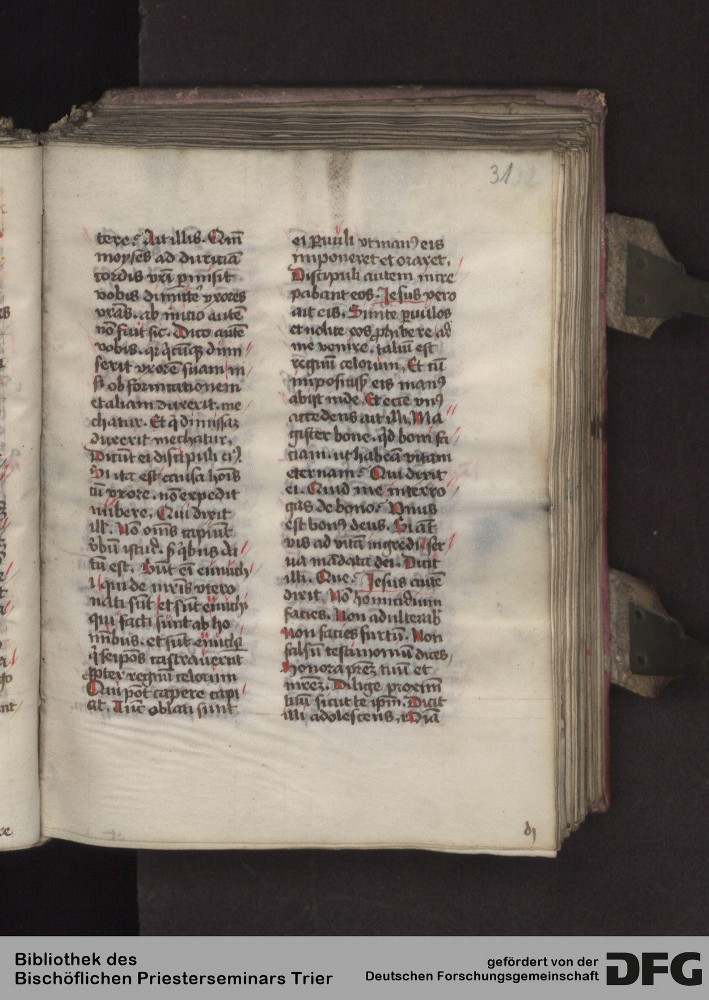 31
tere. Ait illis. Qm̄
moyses ad duriciā
cordis vr̄i p̄misit
vobis dimitte᷑ vxores
vr̄as. ab inicio autē
nō fuit sic. Dico autē
vobis. qꝛ qͥcūqꝫ dimi
serit vxorē suam ni
si ob fornicationem
et aliam duxerit. me
chatur. Et qͥ dimissaꝫ
duxerit mechatur.
Dicūt ei discipuli eiꝰ.
Si ita est causa hoīs
cū vxore. nō expedit
nubere. Qui dixit
ill̓. Nō om̄s capiunt
v̓bū istud. sꝫ qͥbus da
tū est. Sūt ei̅ eunuch
i. qui de mr̄is vtero
nati sūt et sūt eunuchi
qui facti sunt ab ho
mībus. et sūt eunuchi
qͥ seip̄os castrauerūt
ꝓpter regnū celorum
Qui pōt capere capi
at. Tūc oblati sunt
ei ꝑuuli vt manꝰ eis
imponeret et oraret.
Discipuli autem incre
pabant eos. Jesus vero
ait eis. Sinite ꝑuulos
et nolite eos ꝓhibere ad
me venire. taliū est
regnū celorum. Et cū
imposuiss̓ eis manꝰ
abijt inde. Et ecce vnꝰ
accedens ait illi. Ma
gister bone. qͥd boni fa
ciam. ut habeā vitam
eternam. Qui dixit
ei. Quid me interro
gas de bono. Vnus
est bonꝰ deus. Si aūt
vis ad vitā ingredi. ser
ua mandata dei. Dicit
illi. Que. Jesus autē
dixit. Nō homicidium
facies. Non adulterab̓
Non facies furtū. Non
falsū testimoniū dices.
Honora pr̄eꝫ tuū et
mr̄eꝫ. Dilige proximū
tuū sicut te ip̄m. Dicit
illi adolescens. Om̄ia
Bibliothek des
Bischöflichen Priesterseminars Trier
gefördert von der
Deutschen Forschungsgemeinschaft
DFG